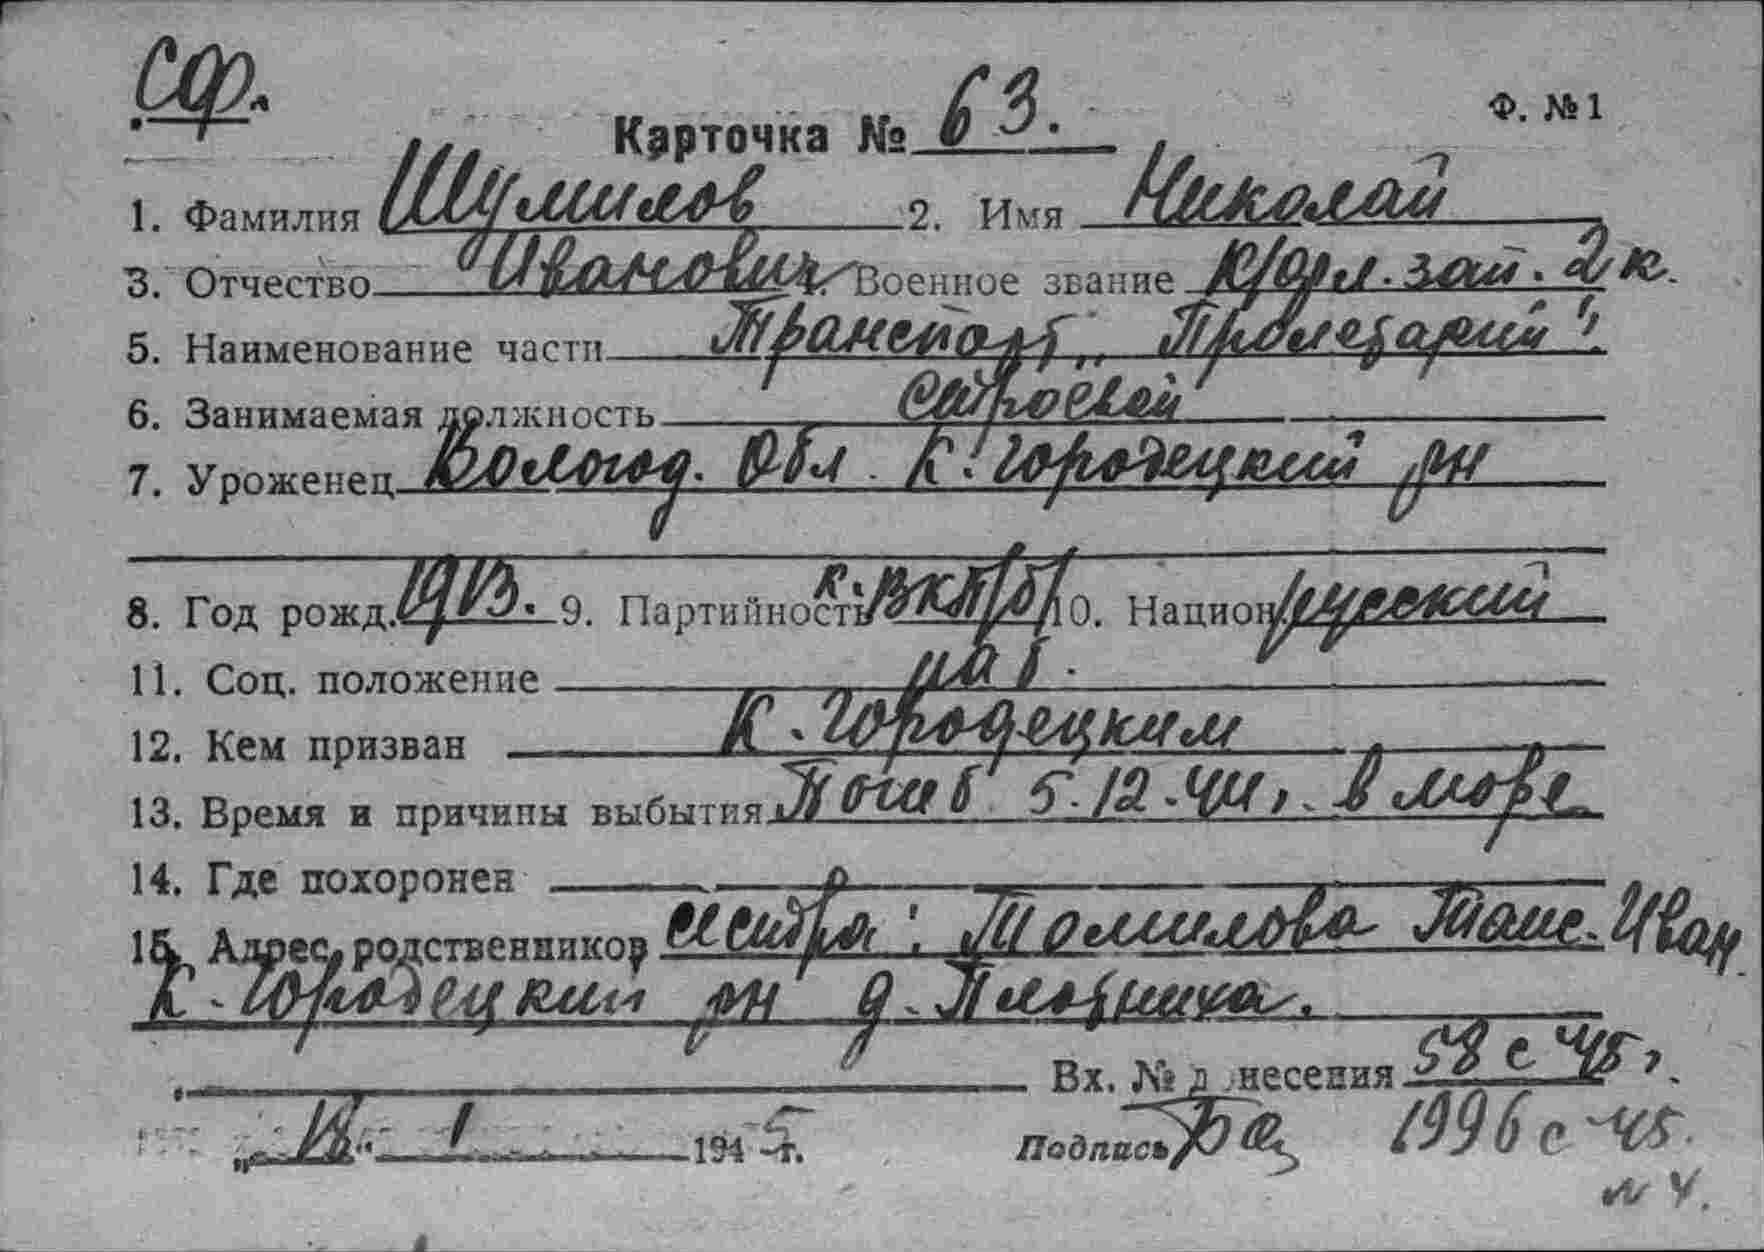 СФ.
Карточка № 63. Ф. № 1
1. Фамилия Шумилов 2. Имя Николай
3. Отчество Иванович 4. Военное звание к/фл. зап. 2 к.
5. Наименование части Транспорт "Пролетарий".
6. Занимаемая должность строевой
7. Уроженец Вологод. Обл. К. Городецкий рн
8. Год рожд. 1913. 9. Партийность к. ВКП/б/ 10. Национ. русский
11. Соц. положение раб.
12. Кем призван К. Городецким
13. Время и причины выбытия Погиб 5.12.44 г. в море
14. Где похоронен
15. Адрес родственников сестра: Томилова Таис. Иван.
К. Городецкий рн д. Плотниха.
Вх. № донесения 58 с 45 г.
"18" 1 1945 г. Подпись 1996 с 45.
№ 4.